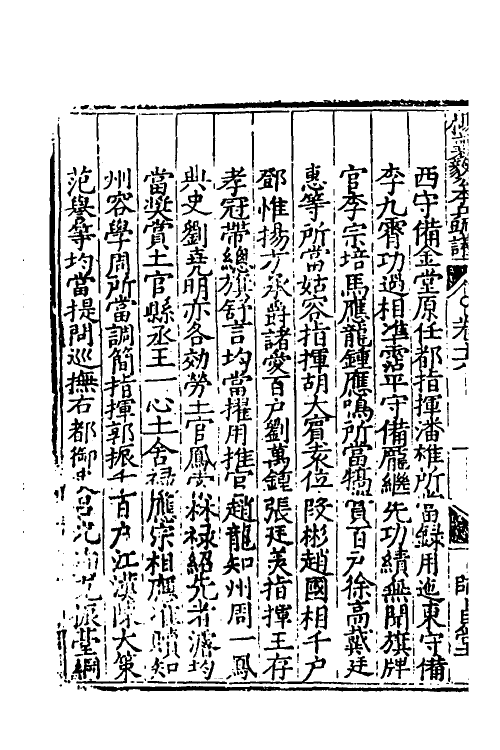 卷十六
西守備金堂原任都指揮潘維所當錄用迤東守備
李九霄功過相準霑平守備龐繼先功績無聞旗牌
官李宗培馬應龍鍾應鳴所當犒賞百戶徐高冀廷
惠等所當姑容指揮胡大賓袁位段彬趙國相千戶
鄧惟揚方承爵諸愛百戶劉萬鍾張廷美指揮王存
孝冠帶總旗舒言均當擢用推官趙龍知州周一鳳
典史劉堯明亦各効勞土官鳳 林祿紹先者濬均
當奬賞土官縣丞王一心土舍祿應宗相應准贖知
州容學周所當調簡指揮郭振千百戶江漢陳大策
范舉等均當提問巡撫右都御史呂光洵 振臺綱